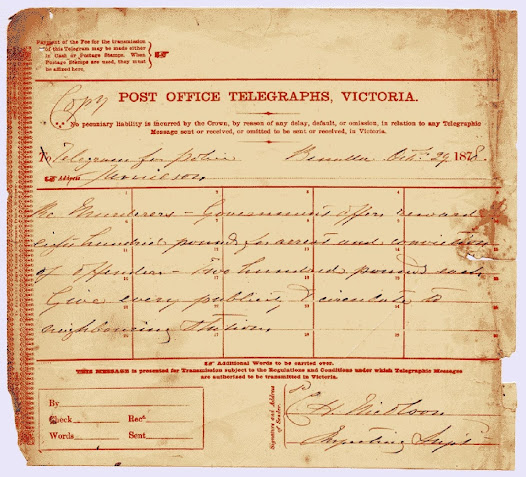 Payment of the Fee for the transmission
of this Telegram may be made either
in Cash or Postage Stamps. When
Postage Stamps are used, they must
be affixed here.
Copy
POST OFFICE TELEGRAPHS, VICTORIA.
No pecuniary liability is incurred by the Crown, by reason of any delay, default, or omission, in relation to any Telegraphic
Message sent or received, or omitted to be sent or received, in Victoria.
To Telegram for police Benalla Octr. 29 1878
Address
re Murderers – Government offer reward
eight hundred pounds for arrest and conviction
of offenders – two hundred pounds each
Give every publicity & circulate to
neighbouring stations
Additional Words to be carried over.
THIS MESSAGE is presented for Transmission subject to the Regulations and Conditions under which Telegraphic Messages
are authorized to be transmitted in Victoria.
By
Check Recd.
Words Sent
Signature and Address
of Sender.
C. H. Nicolson
Inspecting Supt